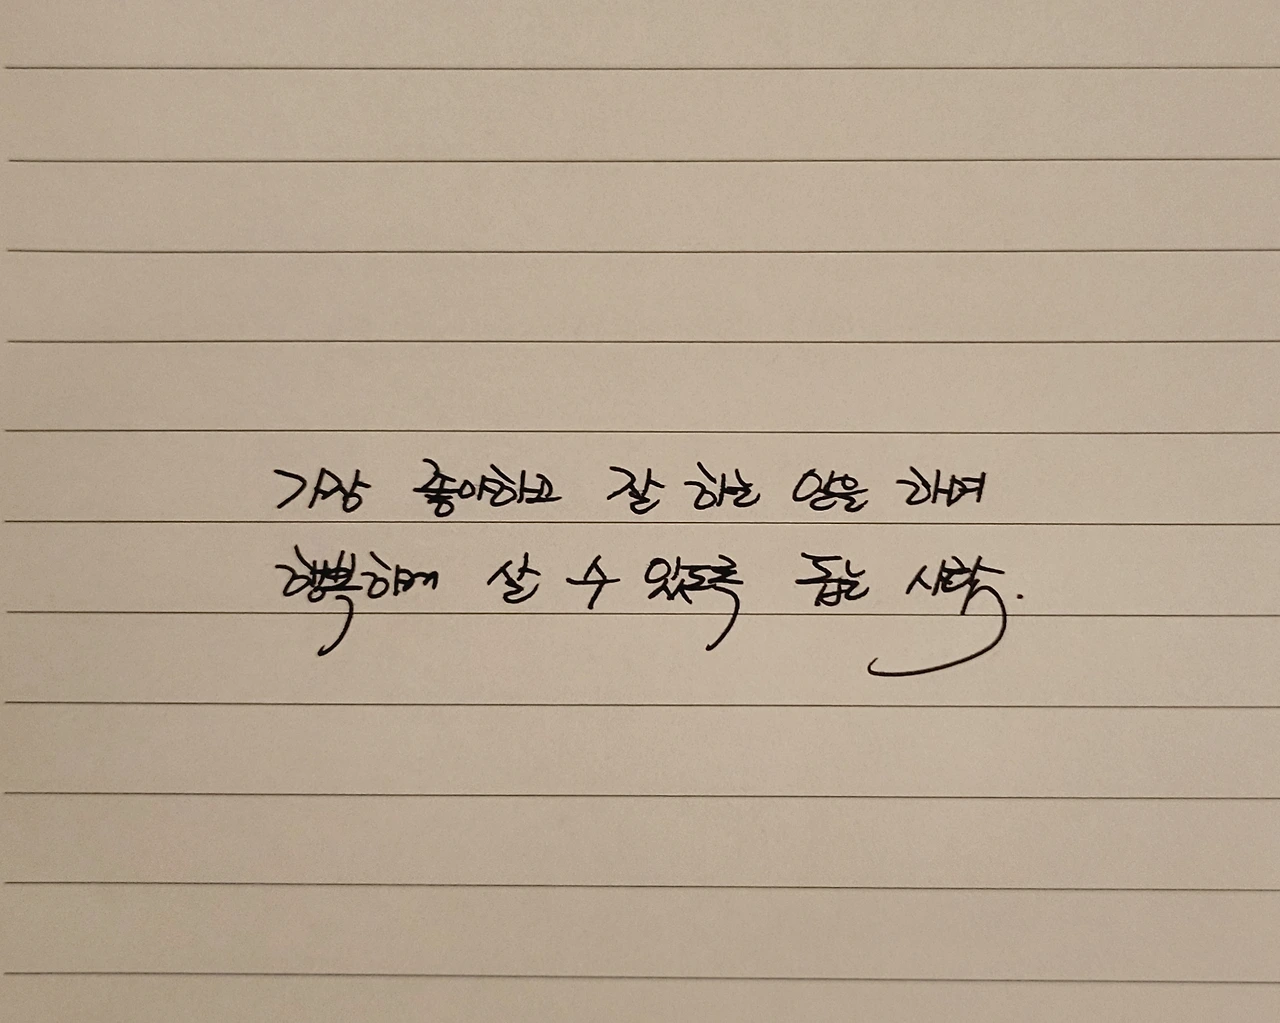 가장 좋아하고 잘 하는 일을 하며
행복하게 살 수 있도록 돕는 사람.